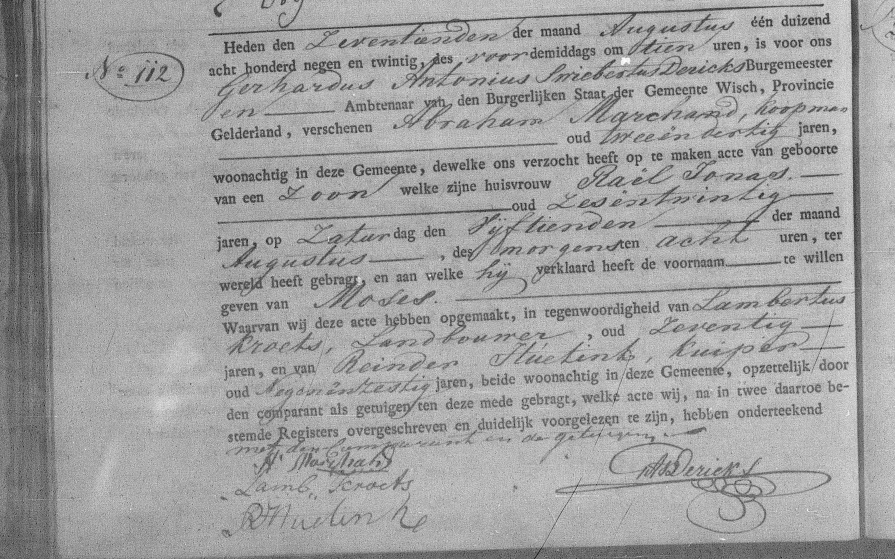 No 112
Heden den Zeventienden der maand Augustus één duizend
acht honderd negen en twintig, des voordemiddags om tien uren, is voor ons
Gerhardus Antonius Swiebertus Dericks Burgemeester
en Ambtenaar van den Burgerlijken Staat der Gemeente Wisch, Provincie
Gelderland, verschenen Abraham Marchand, koopman
oud tweeëndertig jaren,
woonachtig in deze Gemeente, dewelke ons verzocht heeft op te maken acte van geboorte
van een Zoon welke zijne huisvrouw Raël Jonas.
oud Zesentwintig
jaren, op Zaturdag den Vijftienden der maand
Augustus, des morgens ten acht uren, ter
wereld heeft gebragt, en aan welke hij verklaard heeft de voornaam te willen
geven van Moses.
Waarvan wij deze acte hebben opgemaakt, in tegenwoordigheid van Lambertus
Kroets, Landbouwer, oud Zeventig
jaren, en van Reinder Huetink, Kuiper
oud Negenëntzestig jaren, beide woonachtig in deze Gemeente, opzettelijk door
den comparant als getuigen ten deze mede gebragt, welke acte wij, na in twee daartoe be-
stemde Registers overgeschreven en duidelijk voorgelezen te zijn, hebben onderteekend
met den Comparant en de getuigen
A Marchand
Lamb. Kroets
R Huetink
Dericks